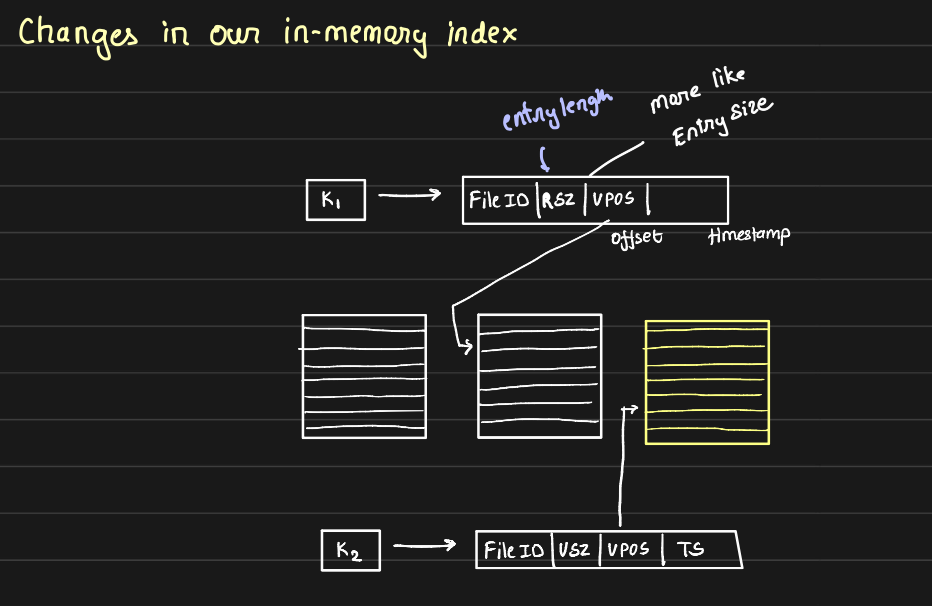 Changes in our in-memory index
entry length
more like
Entry size
K1
File ID RSZ VPOS
offset timestamp
K2
File ID VSZ VPOS TS